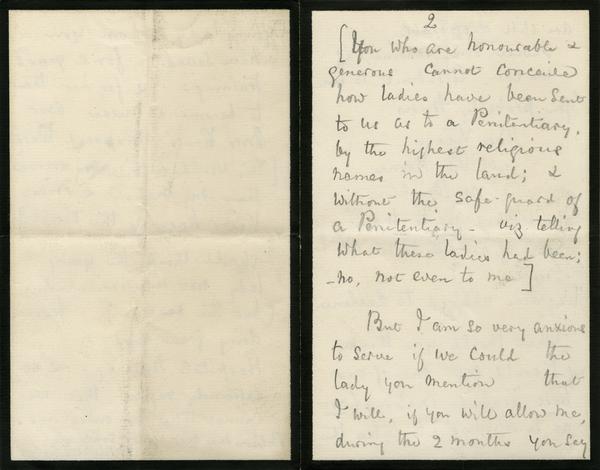 2
[You who are honourable &
generous cannot conceive
how ladies have been sent
to us as to a Penitentiary,
by the highest religious
names in the land; &
without the safe-guard of
a Penitentiary - viz telling
what these ladies had been;
- no, not even to me]
But I am so very anxious
to serve if we could the
lady you mention that
I will, if you will allow me,
during the 2 months you say